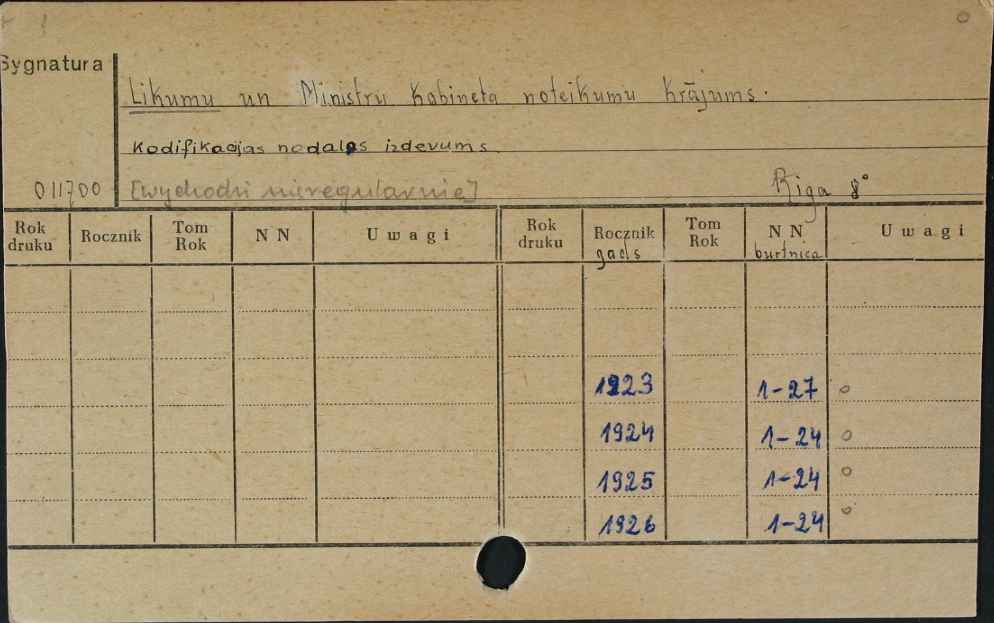 Sygnatura
Likumu un Ministru Kabineta noteikumu krājums.
Kodifikacijas nodaļas izdevums.
011700 [wychodzi nieregularnie] Riga 8°
Rok druku Rocznik Tom Rok NN Uwagi Rok druku Rocznik gads Tom Rok NN burtnica Uwagi
1923 1-27 o
1924 1-24 o
1925 1-24 o
1926 1-24 o